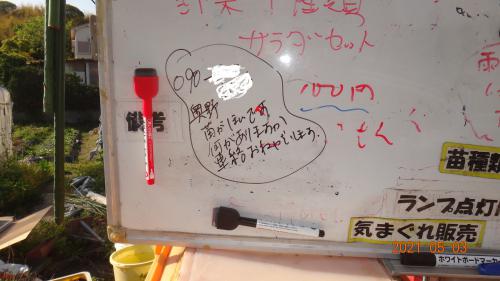 サラダセット
090-
奥野
苗がほしいです
何がありますか、
連絡おねがいします。
100円
備考
苗種類
ランプ点灯
気まぐれ販売
2021-05-03
ホワイトボードマーカー
雨